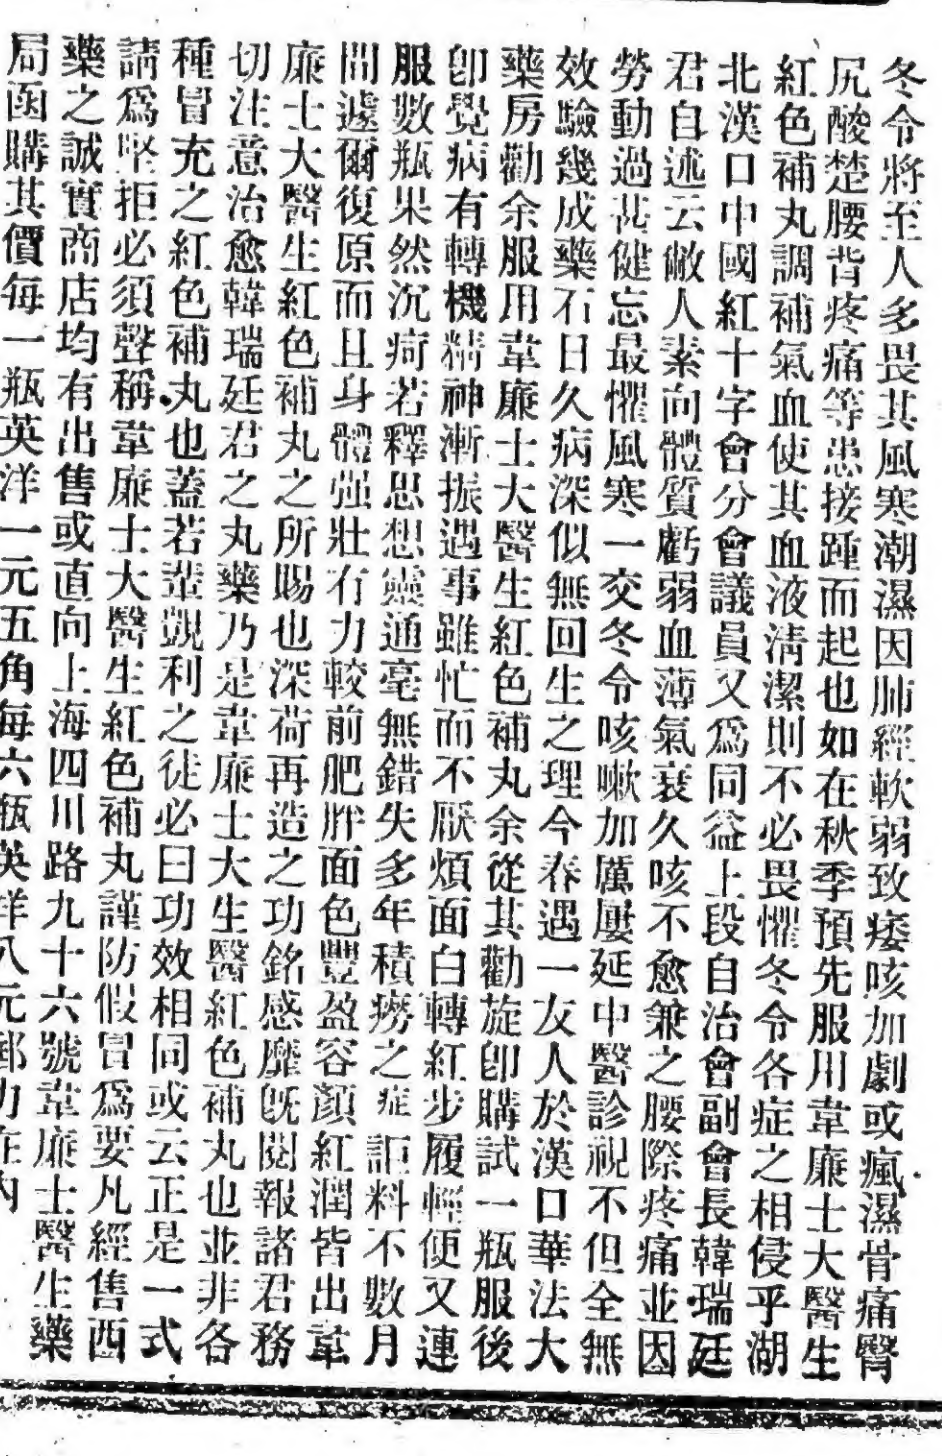 冬令將至人多畏其風寒潮濕因肺經軟弱致痿咳加劇或瘋濕骨痛臀
尻酸楚腰背疼痛等患接踵而起也如在秋季預先服用韋廉士大醫生
紅色補丸調補氣血使其血液淸潔則不必畏懼冬令各症之相侵乎湖
北漢口中國紅十字會分會議員又爲同益上段自治會副會長韓瑞廷
君自述云敝人素向體質虧弱血薄氣衰久咳不愈兼之腰際疼痛並因
勞動過甚健忘最懼風寒一交冬令咳嗽加厲屢延中醫診視不但全無
效驗幾成藥石日久病深似無回生之理今春遇一友人於漢口華法大
藥房勸余服用韋廉士大醫生紅色補丸余從其勸旋卽購試一瓶服後
卽覺病有轉機精神漸振遇事雖忙而不厭煩面白轉紅步履輕便又連
服數瓶果然沉疴若釋思想靈通毫無錯失多年積癆之症詎料不數月
間遽爾復原而且身體强壯有力較前肥胖面色豐盈容顏紅潤皆出韋
廉士大醫生紅色補丸之所賜也深荷再造之功銘感靡旣閱報諸君務
切注意治愈韓瑞廷君之丸藥乃是韋廉士大生醫紅色補丸也並非各
種冒充之紅色補丸也蓋若輩覬利之徒必曰功效相同或云正是一式
請爲堅拒必須聲稱韋廉士大醫生紅色補丸謹防假冒爲要凡經售西
藥之誠實商店均有出售或直向上海四川路九十六號韋廉士醫生藥
局函購其價每一瓶英洋一元五角每六瓶英洋八元郵力在內